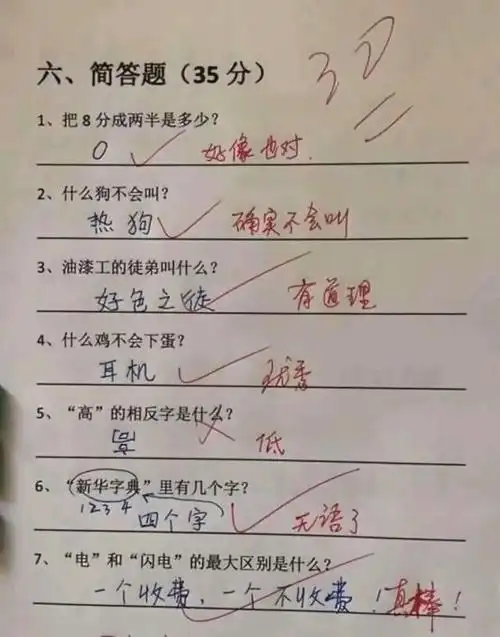 30
六、简答题（35 分）
1、把 8 分成两半是多少？
0 好像也对.
2、什么狗不会叫？
热狗 确实不会叫
3、油漆工的徒弟叫什么？
好色之徒 有道理
4、什么鸡不会下蛋？
耳机 优秀
5、“高”的相反字是什么？
低
6、“新华字典”里有几个字？
1 2 3 4 四个字 无语了
7、“电”和“闪电”的最大区别是什么？
一个收费、一个不收费！真棒！